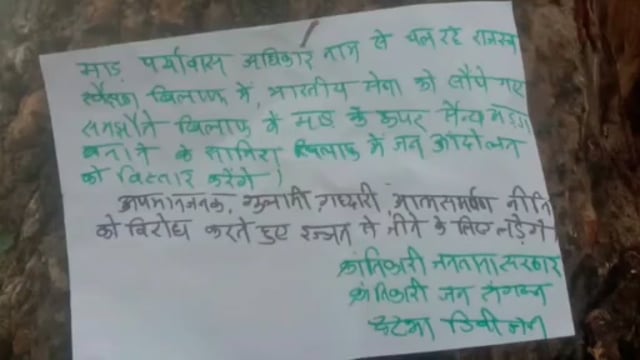 माड़ पर्यावास अधिकार नाम से चल रहे राजस्व
सर्वेक्षण खिलाफ में, भारतीय सेना को सौंपे गए
समझौते खिलाफ में माड़ के ऊपर सैन्य अड्डा
बनाने के खिलाफ में जन आंदोलन
को विस्तार करेंगे।
अपमानजनक, गुलामी गद्दारी, आत्मसमर्पण नीति
को विरोध करते हुए इज्जत से जीने के लिए लड़ेंगे
क्रांतिकारी जनताना सरकार
क्रांतिकारी जन संगठन
डिवीजन